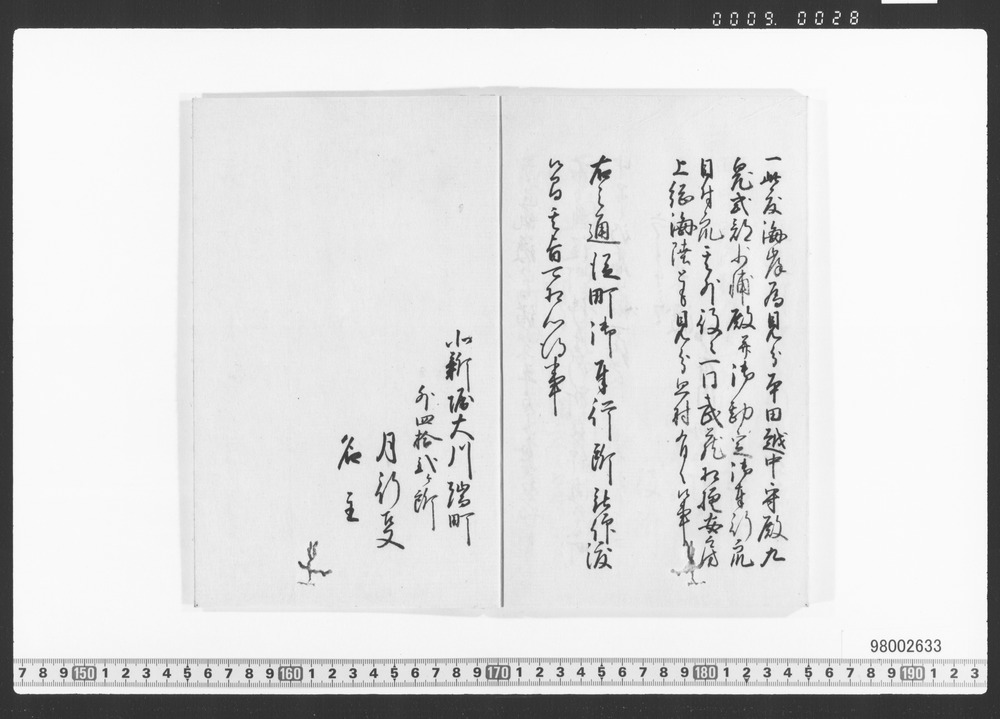 0009. 0028
一此度海岸為見分本田越中守殿九
鬼式部少輔殿并御勘定御奉行衆
目付衆其外役々一同武蔵相模安房
上総海陸とも見分之村有之候事
右之通従町御奉行所被仰渡
候間其旨可相心得事
北新堀大川端町
外四拾弐ヶ所
月行事
名主
98002633
7 8 9 150 1 2 3 4 5 6 7 8 9 160 1 2 3 4 5 6 7 8 9 170 1 2 3 4 5 6 7 8 9 180 1 2 3 4 5 6 7 8 9 190 1 2 3